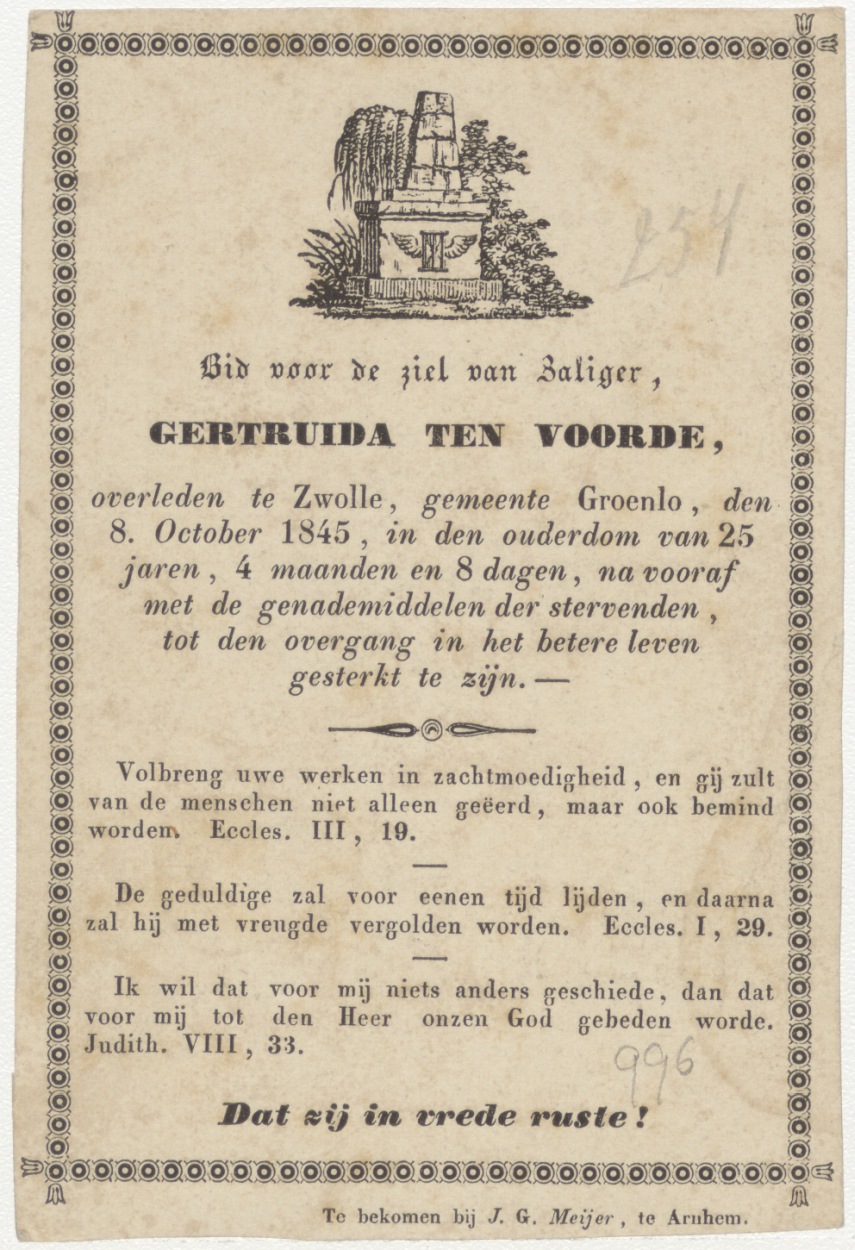 254
Bid voor de ziel van Zaliger,
GERTRUIDA TEN VOORDE,
overleden te Zwolle, gemeente Groenlo, den
8. October 1845, in den ouderdom van 25
jaren, 4 maanden en 8 dagen, na vooraf
met de genademiddelen der stervenden,
tot den overgang in het betere leven
gesterkt te zijn. —
Volbreng uwe werken in zachtmoedigheid, en gij zult
van de menschen niet alleen geëerd, maar ook bemind
worden. Eccles. III, 19.
De geduldige zal voor eenen tijd lijden, en daarna
zal hij met vreugde vergolden worden. Eccles. I, 29.
Ik wil dat voor mij niets anders geschiede, dan dat
voor mij tot den Heer onzen God gebeden worde.
Judith. VIII, 33.
996
Dat zij in vrede ruste!
Te bekomen bij J. G. Meijer, te Arnhem.